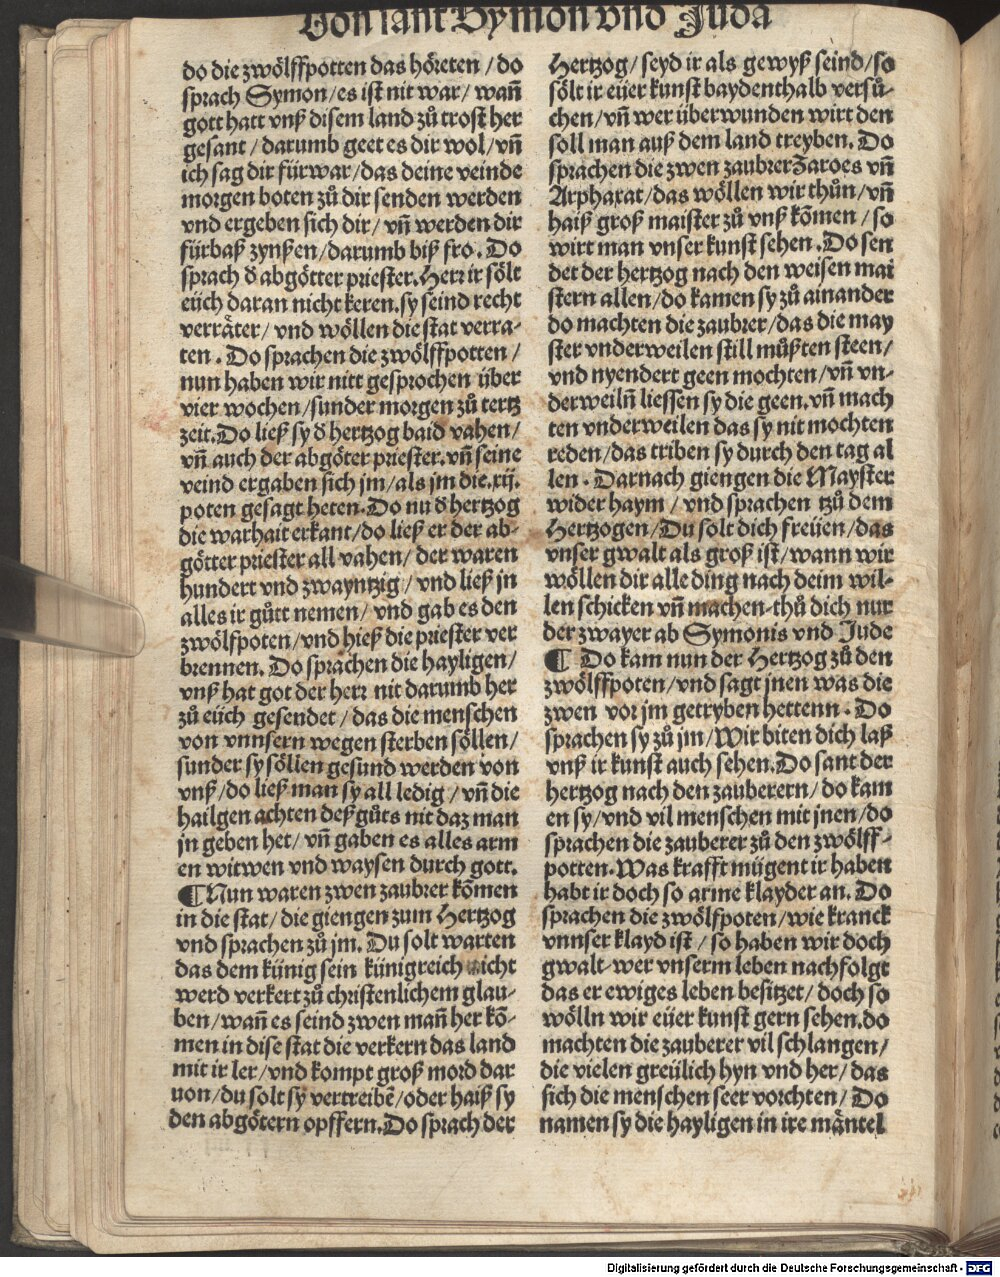 Von sant Symon vnd Juda
do die zwölffpotten das höreten / do
sprach Symon / es ist nit war / wan̄
gott hatt vnß disem land zů trost her
gesant / darumb geet es dir wol / vn̄
ich sag dir fürwar / das deine veinde
morgen boten zů dir senden werden
vnd ergeben sich dir / vn̄ werden dir
fürbaß zynßen / darumb biß fro. Do
sprach d̕ abgötter priester. Herr ir sölt
eüch daran nicht keren. sy seind recht
verräter / vnd wöllen die stat verra-
ten. Do sprachen die zwölffpotten /
nun haben wir nitt gesprochen über
vier wochen / sunder morgen zů tertz
zeit. Do ließ sy d̕ hertzog baid vahen /
vn̄ auch der abgöter priester. vn̄ seine
veind ergaben sich jm / als jm die .xij.
poten gesagt heten. Do nu d̕ hertzog
die warhait erkant / do ließ er der ab-
götter priester all vahen / der waren
hundert vnd zwayntzig / vnd ließ jn
alles ir gůtt nemen / vnd gab es den
zwölfpoten / vnd hieß die priester ver
brennen. Do sprachen die hayligen /
vnß hat got der herr nit darumb her
zů eüch gesendet / das die menschen
von vnnsern wegen sterben söllen /
sunder sy söllen gesund werden von
vnß / do ließ man sy all ledig / vn̄ die
hailgen achten deß gůts nit daz man
jn geben het / vn̄ gaben es alles arm
en witwen vnd waysen durch gott.
¶ Nun waren zwen zaubrer kōmen
in die stat / die giengen zum Hertzog
vnd sprachen zů jm. Du solt warten
das dem künig sein künigreich nicht
werd verkert zů christenlichem glau-
ben / wan̄ es seind zwen man̄ her kō-
men in dise stat die verkern das land
mit ir ler / vnd kompt groß mord dar
uon / du solt sy vertreibē / oder haiß sy
den abgötern opffern. Do sprach der
Hertzog / seyd ir als gewyß seind / so
sölt ir eüer kunst baydenthalb versů-
chen / vn̄ wer überwunden wirt den
soll man auß dem land treyben. Do
sprachen die zwen zaubrer Zaroes vn̄
Arphaxat / das wöllen wir thůn / vn̄
haiß groß maister zů vnß kōmen / so
wirt man vnser kunst sehen. Do sen
det der hertzog nach den weisen mai
stern allen / do kamen sy zů ainander
do machten die zaubrer / das die may
ster vnderweilen still můßten steen /
vnd nyendert geen mochten / vn̄ vn-
derweiln̄ liessen sy die geen. vn̄ mach
ten vnderweilen das sy nit mochten
reden / das triben sy durch den tag al
len. Darnach giengen die Mayster
wider haym / vnd sprachen tzů dem
Hertzogen / Du solt dich freüen / das
vnser gwalt als groß ist / wann wir
wöllen dir alle ding nach deim wil-
len schicken vn̄ machen. thů dich nur
der zwayer ab Symonis vnd Jude
¶ Do kam nun der Hertzog zů den
zwölffpoten / vnd sagt jnen was die
zwen vor jm getryben hettenn. Do
sprachen sy zů jm / Wir biten dich laß
vnß ir kunst auch sehen. Do sant der
hertzog nach den zauberern / do kam
en sy / vnd vil menschen mit jnen / do
sprachen die zauberer zů den zwölff-
potten. Was krafft mügent ir haben
habt ir doch so arme klayder an. Do
sprachen die zwölfpoten / wie kranck
vnnser klayd ist / so haben wir doch
gwalt. wer vnserm leben nachfolgt
das er ewiges leben besitzet / doch so
wölln wir eüer kunst gern sehen. do
machten die zauberer vil schlangen /
die vielen greülich hyn vnd her / das
sich die menschen seer vorchten / Do
namen sy die hayligen in ire mäntel
Digitalisierung gefördert durch die Deutsche Forschungsgemeinschaft - DFG